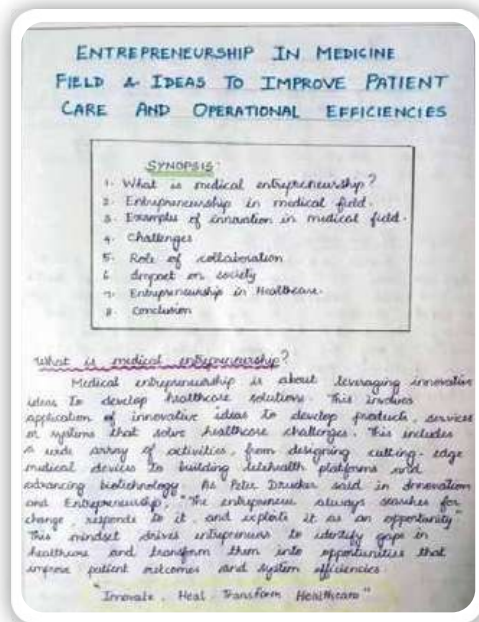 ENTREPRENEURSHIP IN MEDICINE
FIELD & IDEAS TO IMPROVE PATIENT
CARE AND OPERATIONAL EFFICIENCIES
SYNOPSIS:
1. What is medical entrepreneurship?
2. Entrepreneurship in medical field.
3. Examples of innovation in medical field.
4. Challenges
5. Role of collaboration
6. Impact on society
7. Entrepreneurship in Healthcare.
8. Conclusion
What is medical entrepreneurship?
Medical entrepreneurship is about leveraging innovative
ideas to develop healthcare solutions. This involves
application of innovative ideas to develop products, services
or systems that solve healthcare challenges. This includes
a wide array of activities, from designing cutting-edge
medical devices to building telehealth platforms and
advancing biotechnology. As Peter Drucker said in Innovation
and Entrepreneurship, "The entrepreneur always searches for
change, responds to it, and exploits it as an opportunity"
This mindset drives entrepreneurs to identify gaps in
healthcare and transform them into opportunities that
improve patient outcomes and system efficiencies.
"Innovate, Heal, Transform Healthcare"